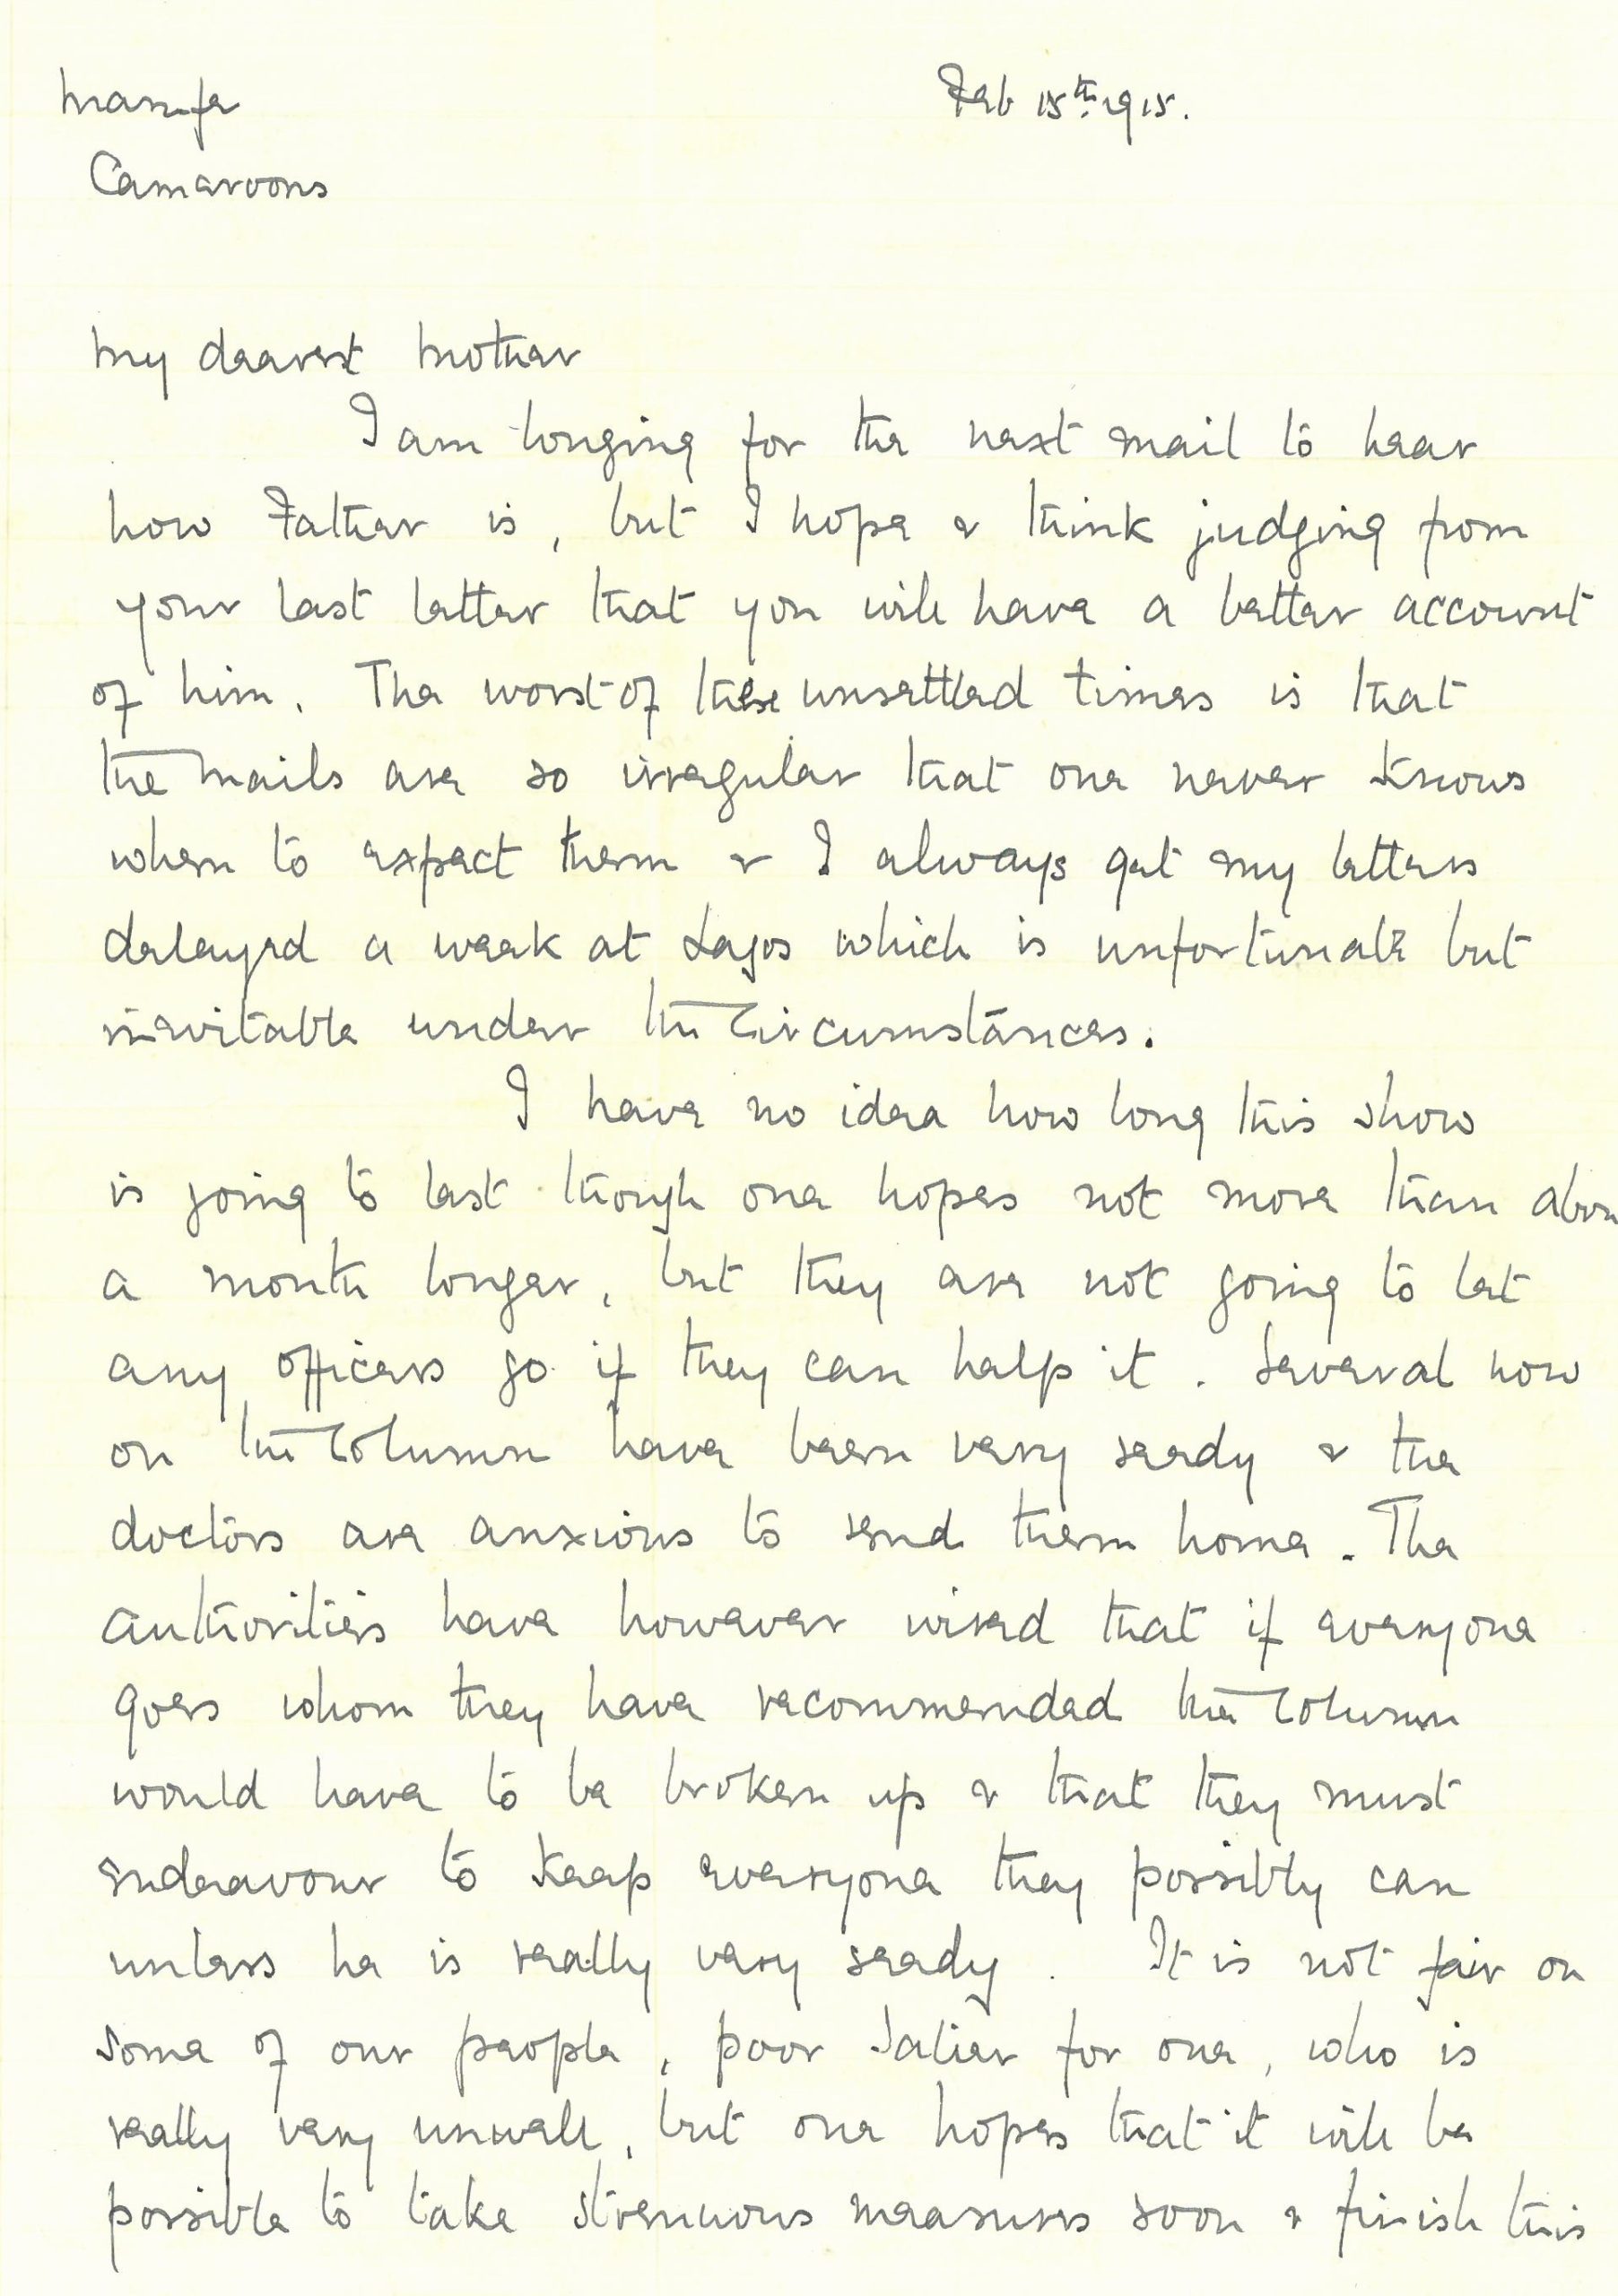 Mamfe
Feb 15th 1915.
Camaroons
My dearest Mother
I am longing for the next mail to hear
how Father is, but I hope & think judging from
your last letter that you will have a better account
of him. The worst of these unsettled times is that
the mails are so irregular that one never knows
when to expect them & I always get my letters
delayed a week at Lagos which is unfortunate but
inevitable under the circumstances.
I have no idea how long this show
is going to last though one hopes not more than abou
a month longer, but they are not going to let
any officers go if they can help it. Several now
on the Column have been very seedy & the
doctors are anxious to send them home. The
authorities have however wired that if everyone
goes whom they have recommended the Column
would have to be broken up & that they must
endeavour to keep everyone they possibly can
unless he is really very seedy. It is not fair on
some of our people, poor Salier for one, who is
really very unwell, but one hopes that it will be
possible to take strenuous measures soon & finish this